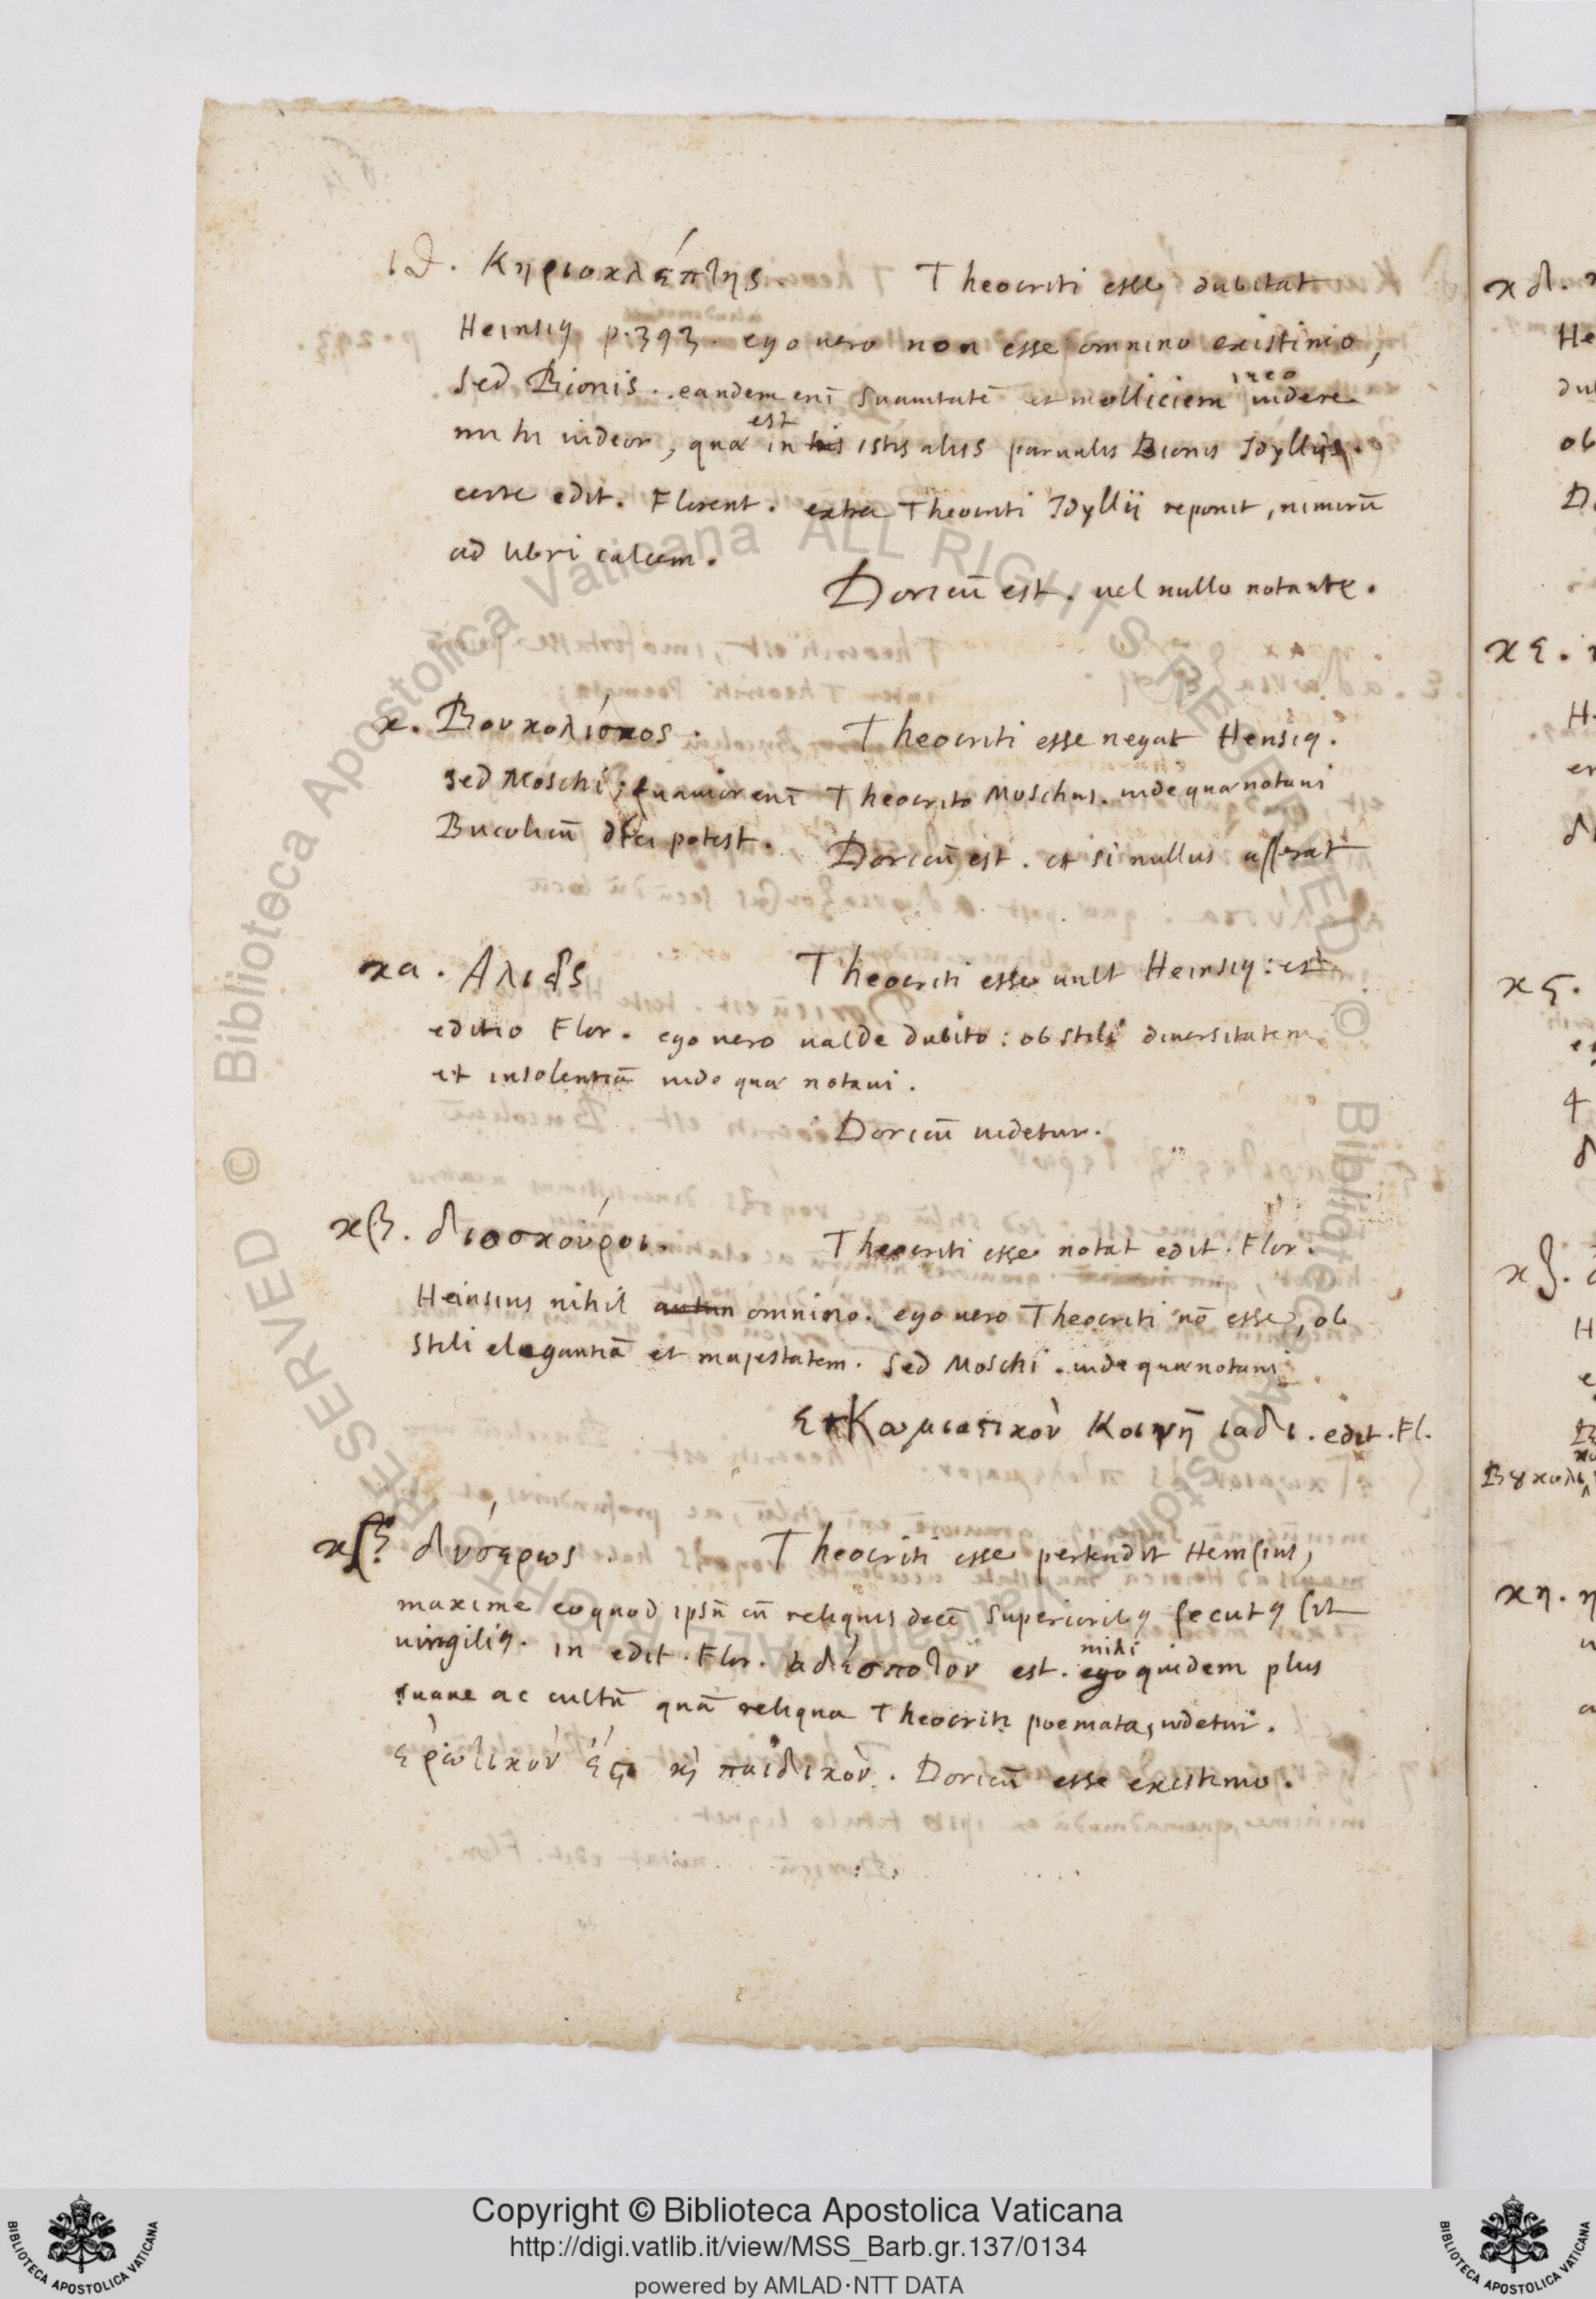 ιθ. Κηριοκλέπτης. Theocriti esse dubitat
Heinsiꝯ p. 393. ego uero non esse omnino existimo,
sed Bionis. eandem enī suauitatē et molliciem in eo uidere
mihi uideor, quae est in his istis aliis paruulis Bionis Idyllijs.
certe edit. Florent. extra Theocriti Idyllij reponit, nimirū
ad libri calcem.
Doricū est. uel nullo notante.
κ. Βουκολίσκος. Theocriti esse negat Hensiꝯ.
sed Moschi; suauior enī Theocrito Moschus. uide quae notaui
Bucolicū dici potest. Doricū est. et si nullus asserat
κα. Αλιεῖς Theocriti esse uult Heinsiꝯ: est
editio Flor. ego uero ualde dubito: ob stili diuersitatem
et insolentiā uide quae notaui.
Doricū uidetur.
κβ. διοσκούροι. Theocriti esse notat edit. Flor.
Heinsius nihil autem omnino. ego uero Theocriti nō esse, ob
stili elegantiā et majestatem. sed Moschi. uide quae notaui
Κοινῇ ιαδι. edit. Fl.
δύσερως. Theocriti esse pertendit Heinsius,
maxime eo quod ipsū cū reliquis decē superioribꝯ secutꝯ sit
uirgiliꝯ. in edit. Flor. ἀδέσποτον est. ego mihi quidem plus
suaue ac cultū quā reliqua Theocriti poemata, uidetur.
ἐρωτικόν ἐστι κὶ παιδικὸν. Doricū esse existimo.
κδ.
κε.
κη.
Copyright © Biblioteca Apostolica Vaticana
http://digi.vatlib.it/view/MSS_Barb.gr.137/0134
powered by AMLAD·NTT DATA